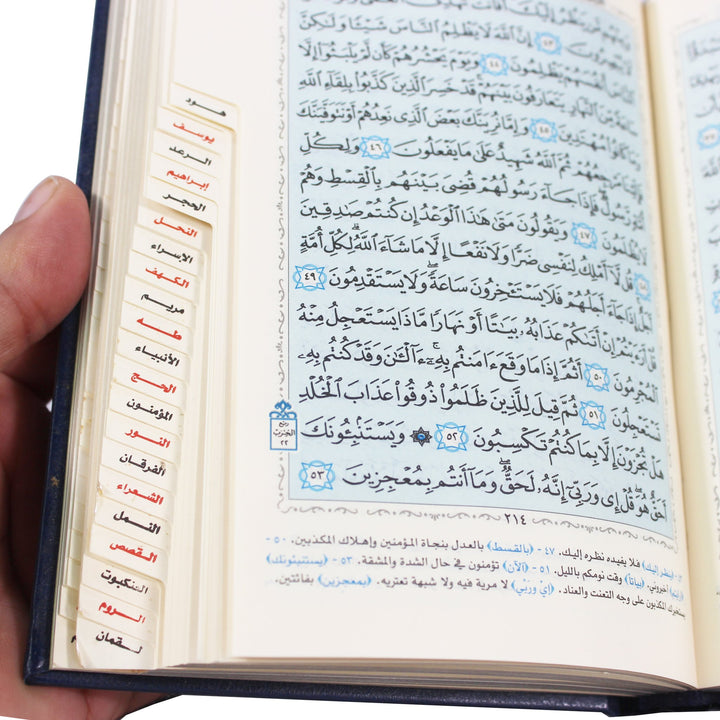 هود
يوسف
الرعد
إبراهيم
الحجر
النحل
الاسراء
الكهف
مريم
طه
الأنبياء
الحج
المؤمنون
النور
الفرقان
الشعراء
النمل
القصص
العنكبوت
الروم
لقمان
لَا يُبْصِرُونَ ٤٣ إِنَّ ٱللَّهَ لَا يَظْلِمُ ٱلنَّاسَ شَيْـًٔا وَلَٰكِنَّ
أَنفُسَهُمْ يَظْلِمُونَ ٤٤ وَيَوْمَ يَحْشُرُهُمْ كَأَن لَّمْ يَلْبَثُوٓا۟ إِلَّا
مِّنَ ٱلنَّهَارِ يَتَعَارَفُونَ بَيْنَهُمْ قَدْ خَسِرَ ٱلَّذِينَ كَذَّبُوا۟ بِلِقَآءِ ٱللَّهِ
كَانُوا۟ مُهْتَدِينَ ٤٥ وَإِمَّا نُرِيَنَّكَ بَعْضَ ٱلَّذِى نَعِدُهُمْ أَوْ نَتَوَفَّيَنَّكَ
مَرْجِعُهُمْ ثُمَّ ٱللَّهُ شَهِيدٌ عَلَىٰ مَا يَفْعَلُونَ ٤٦ وَلِكُلِّ
رَّسُولٌ فَإِذَا جَآءَ رَسُولُهُمْ قُضِىَ بَيْنَهُم بِٱلْقِسْطِ وَهُمْ
لَا يُظْلَمُونَ ٤٧ وَيَقُولُونَ مَتَىٰ هَٰذَا ٱلْوَعْدُ إِن كُنتُمْ صَٰدِقِينَ
قُل لَّآ أَمْلِكُ لِنَفْسِى ضَرًّا وَلَا نَفْعًا إِلَّا مَا شَآءَ ٱللَّهُ لِكُلِّ أُمَّةٍ
أَجَلٌ إِذَا جَآءَ أَجَلُهُمْ فَلَا يَسْتَـْٔخِرُونَ سَاعَةً وَلَا يَسْتَقْدِمُونَ ٤٩
قُلْ أَرَءَيْتُمْ إِنْ أَتَىٰكُمْ عَذَابُهُۥ بَيَٰتًا أَوْ نَهَارًا مَّاذَا يَسْتَعْجِلُ مِنْهُ
ٱلْمُجْرِمُونَ ٥٠ أَثُمَّ إِذَا مَا وَقَعَ ءَامَنتُم بِهِۦٓ ءَآلْـَٰٔنَ وَقَدْ كُنتُم بِهِۦ
تَسْتَعْجِلُونَ ٥١ ثُمَّ قِيلَ لِلَّذِينَ ظَلَمُوا۟ ذُوقُوا۟ عَذَابَ ٱلْخُلْدِ
هَلْ تُجْزَوْنَ إِلَّا بِمَا كُنتُمْ تَكْسِبُونَ ٥٢ وَيَسْتَنۢبِـُٔونَكَ
أَحَقٌّ هُوَ قُلْ إِى وَرَبِّىٓ إِنَّهُۥ لَحَقٌّ وَمَآ أَنتُم بِمُعْجِزِينَ ٥٣
ربع
الحزب
٢٢
٢١٤
﴿ينظر إليك﴾ فلا يفيده نظره إليك. ٤٧ - ﴿بالقسط﴾ بالعدل بنجاة المؤمنين وإهلاك المكذبين. ٥٠ -
أخبروني. ﴿بياتاً﴾ وقت نومكم بالليل. ٥١ - ﴿آلآن﴾ تؤمنون في حال الشدة والمشقة. ٥٣ - ﴿يستنبئونك﴾
يستخبرك المكذبون على وجه التعنت والعناد. ﴿إي وربي﴾ لا مرية فيه ولا شبهة تعتريه. ﴿بمعجزين﴾ بفائتين.